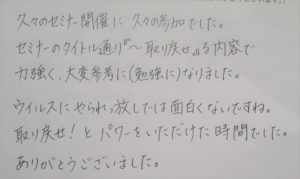 久々のセミナー開催に久々の参加でした。
セミナーのタイトル通り『～取り戻せ』る内容で
力強く、大変参考に(勉強に)なりました。
ウイルスにやられっ放しでは面白くないですね。
取り戻せ！とパワーをいただけた時間でした。
ありがとうございました。